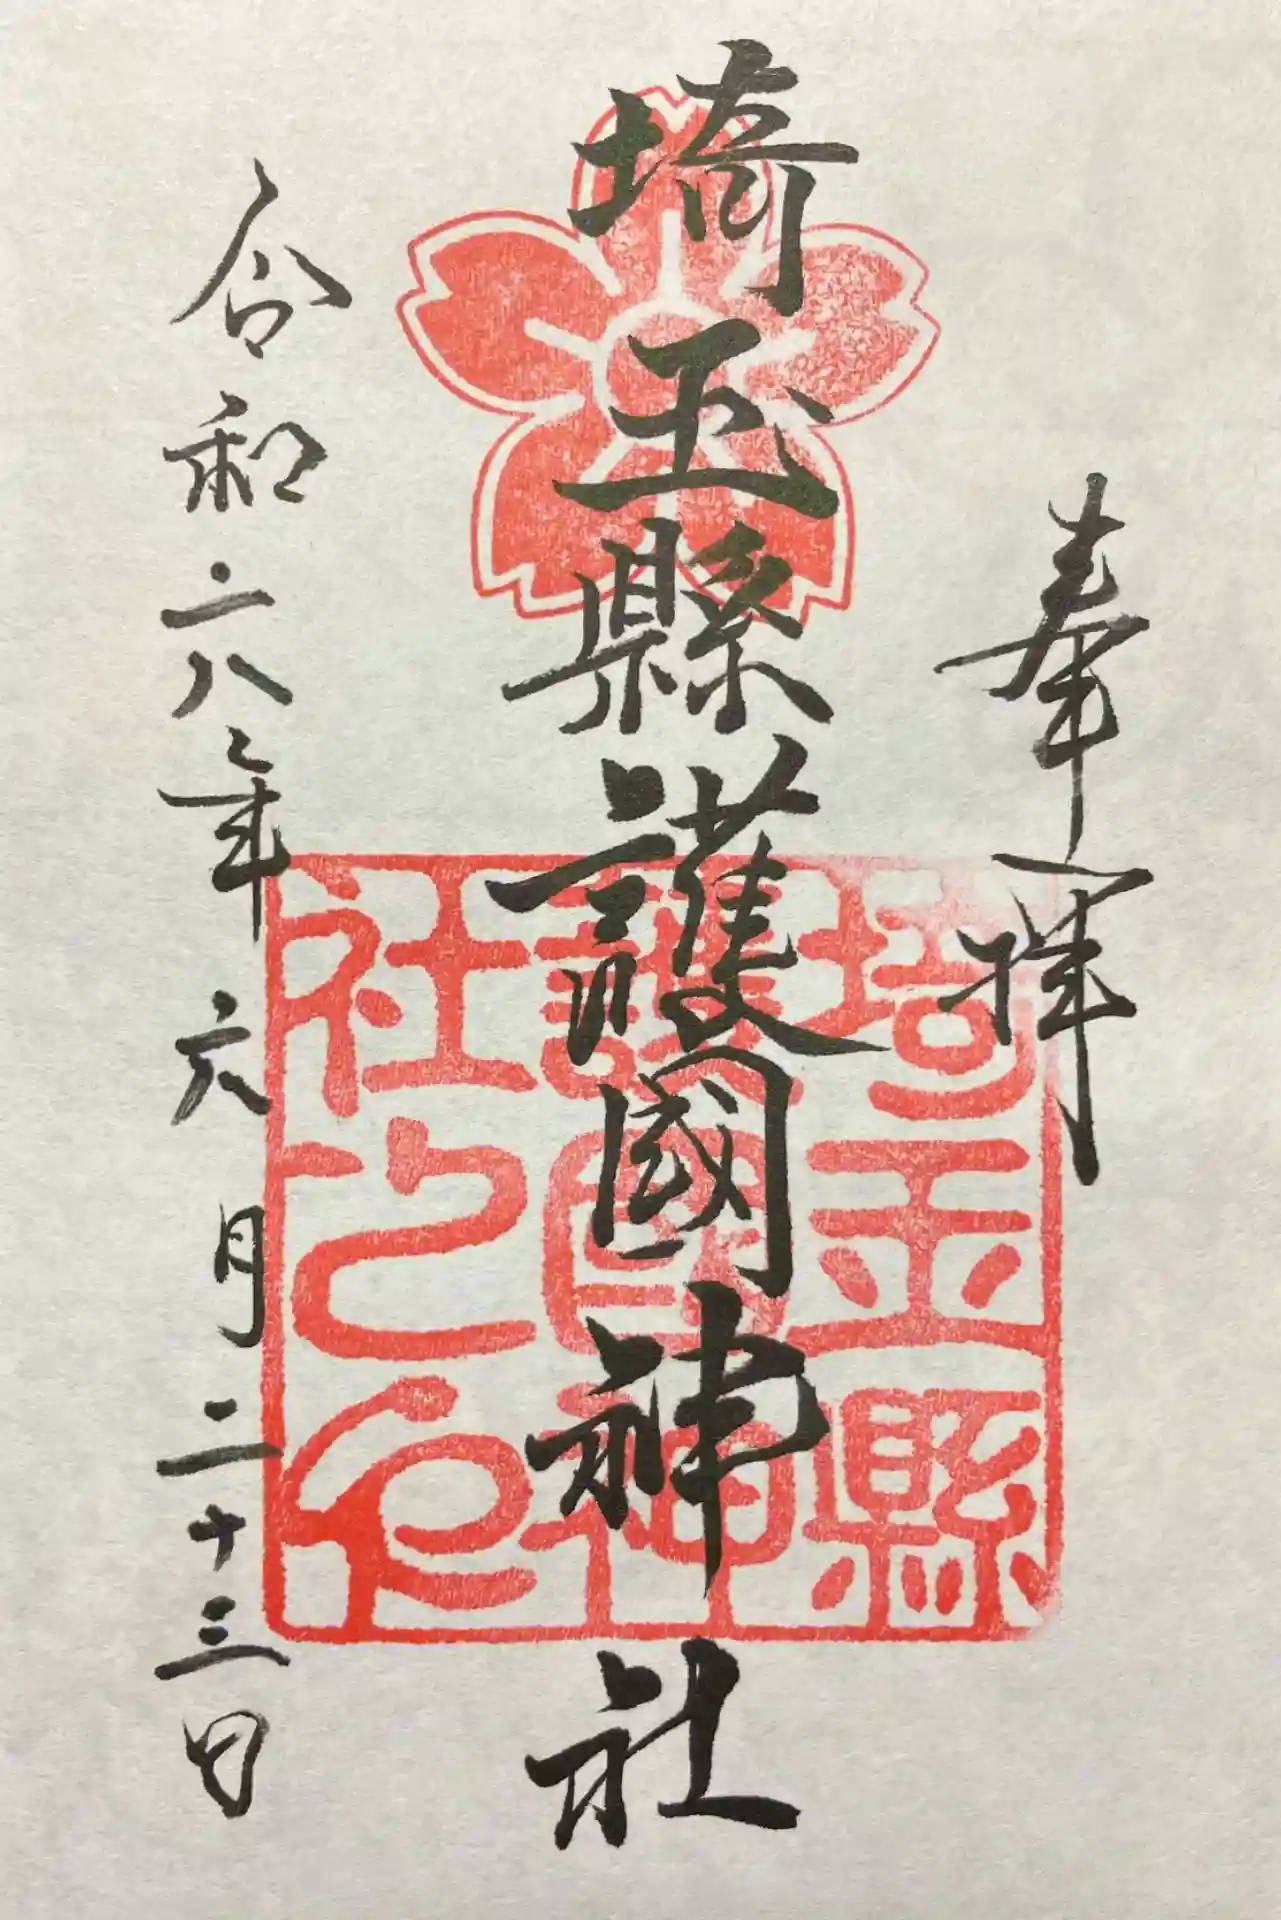 奉拝
埼玉縣護國神社
埼玉縣
護国神
社之印
令和六年六月二十三日